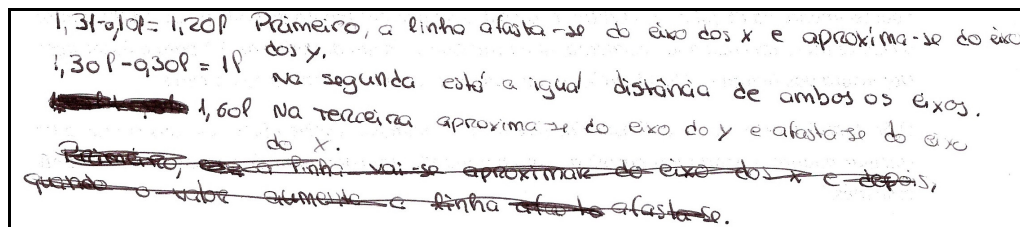 1,31-0,10l = 1,20l Primeiro, a linha afasta-se do eixo dos x e aproxima-se do eixo
dos y.
1,30l-0,30l = 1l
Na segunda está a igual distância de ambos os eixos.
1,60l Na terceira aproxima-se do eixo do y e afasta-se do eixo
do x.
Primeiro, a linha vai-se aproximar do eixo dos x e depois,
quando o valor aumenta a linha afasta-se.